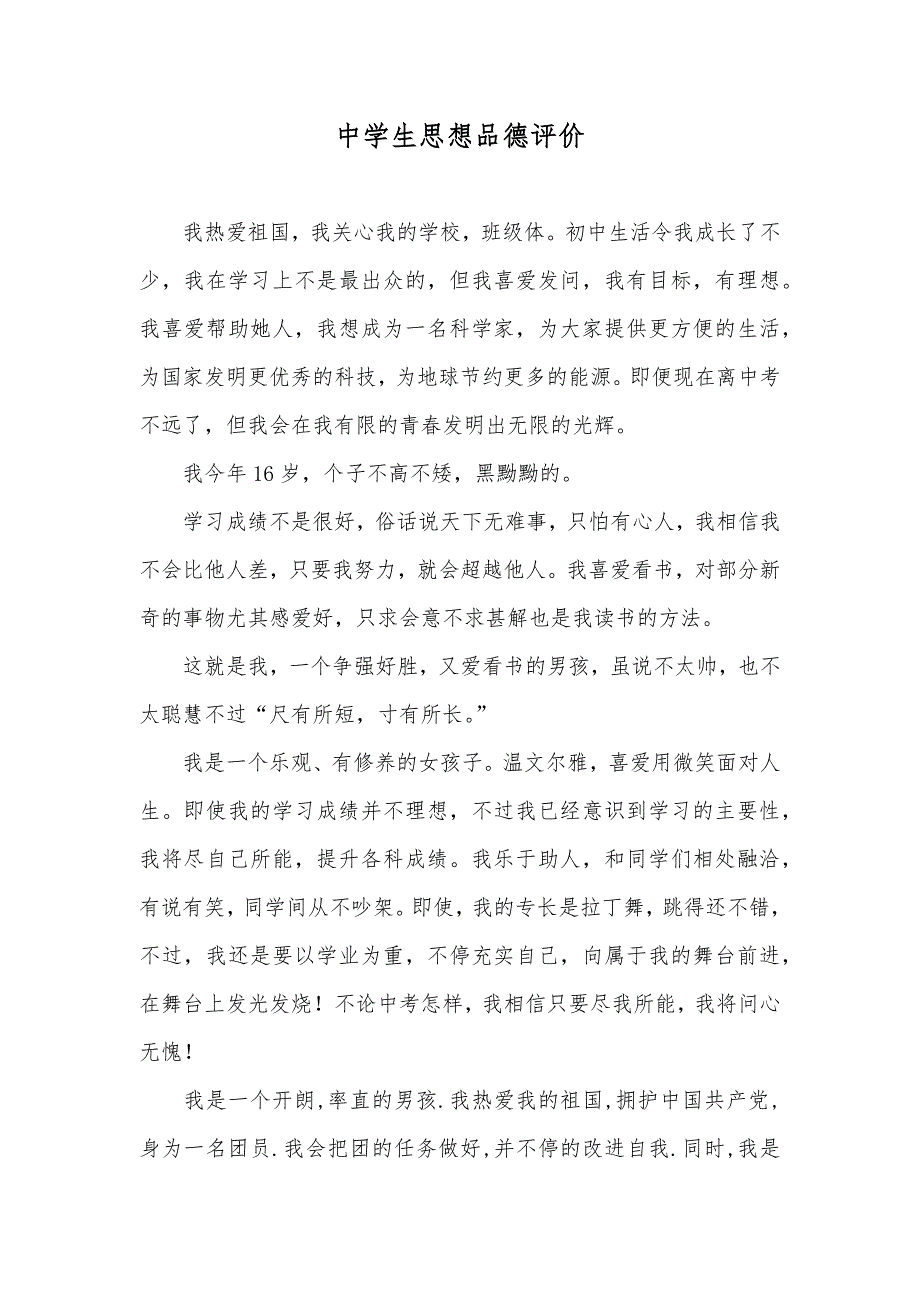 中学生思想品德评价
我热爱祖国，我关心我的学校，班级体。初中生活令我成长了不
少，我在学习上不是最出众的，但我喜爱发问，我有目标，有理想。
我喜爱帮助她人，我想成为一名科学家，为大家提供更方便的生活，
为国家发明更优秀的科技，为地球节约更多的能源。即便现在离中考
不远了，但我会在我有限的青春发明出无限的光辉。
我今年 16 岁，个子不高不矮，黑黝黝的。
学习成绩不是很好，俗话说天下无难事，只怕有心人，我相信我
不会比他人差，只要我努力，就会超越他人。我喜爱看书，对部分新
奇的事物尤其感爱好，只求会意不求甚解也是我读书的方法。
这就是我，一个争强好胜，又爱看书的男孩，虽说不太帅，也不
太聪慧不过“尺有所短，寸有所长。”
我是一个乐观、有修养的女孩子。温文尔雅，喜爱用微笑面对人
生。即使我的学习成绩并不理想，不过我已经意识到学习的主要性，
我将尽自己所能，提升各科成绩。我乐于助人，和同学们相处融洽，
有说有笑，同学间从不吵架。即使，我的专长是拉丁舞，跳得还不错，
不过，我还是要以学业为重，不停充实自己，向属于我的舞台前进，
在舞台上发光发烧！不论中考怎样，我相信只要尽我所能，我将问心
无愧！
我是一个开朗,率直的男孩.我热爱我的祖国,拥护中国共产党,
身为一名团员.我会把团的任务做好,并不停的改进自我.同时,我是